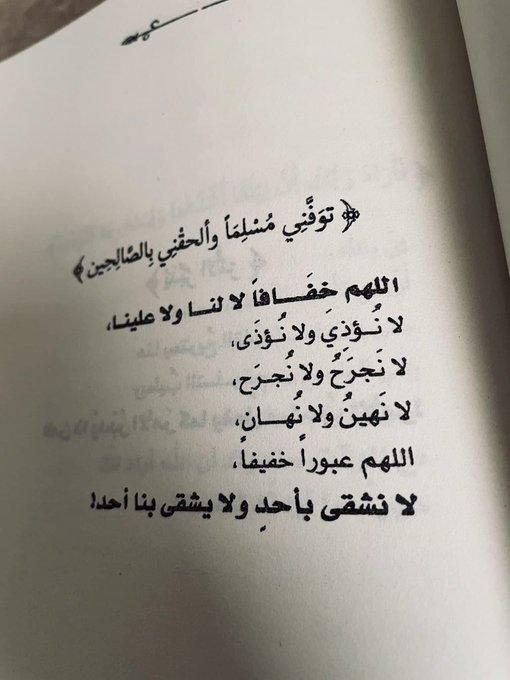 ﴿ توَفَّنِي مُسْلِمَاً وألحقْنِي بِالصَّالِحِين ﴾
اللهم خفَــافاً لا لنا ولا علينا،
لا نُـؤذِيَ ولا نُـؤذَى،
لا نَجرَحُ ولا نُجـرَح،
لا نَهينُ ولا نُهـانِ،
اللهم عبوراً خفيفاً،
لا نشقى بأحدِ ولا يشقى بنا أحد!